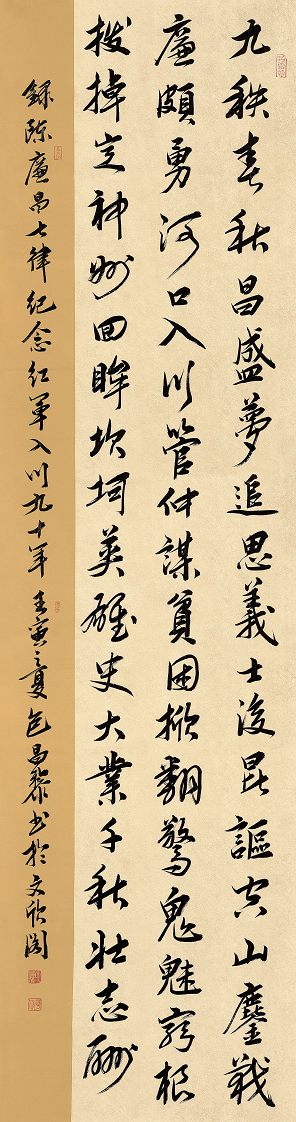 九秩春秋昌盛夢追思義士後昆謳空山鏖戰
廉頗勇河口入川管仲謀貧困掀翻驚鬼魅窮根
拔掉定神州回眸坎坷英雄史大業千秋壯志酬
錄陳廉昌七律紀念紅軍入川九十年 壬寅之夏包昌黎書於文欣閣